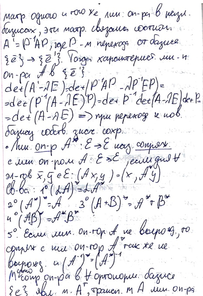 матр одного и того же лин. оп-ра в разл.
базисах, эти матр. связаны соотнош.
A' = P⁻¹AP, где P - м перехода от базиса
{e} → {e'}. Тогда характерист. мн-н
оп-ра A в {e'}
det(A'-λE)=det(P⁻¹AP-λP⁻¹EP)=
=det(P⁻¹(A-λE)P)=det P⁻¹ det(A-λE) det P=
=det(A-λE) => при переход к нов.
базису собств. знач. сохр.
• Лин. оп-р A*: E→E назыв. сопряж
с лин оп-ром A: E→E, если для ∀
x, y ∈ E (Ax, y) = (x, A*y)
Св-ва: 1° (λA)*=λA*
2° (A*)*=A 3° (A+B)*=A*+B*
4° (AB)*=B*A*
5° Если лин. оп-тор A не вырожд, то
сопряж с ним оп-тор A* также не
вырожд. и (A⁻¹)*=(A*)⁻¹
оп-ра в ∀ ортонорм. базисе
{e} явл. м. Aᵀ, трансп. м. A лин оп-ра